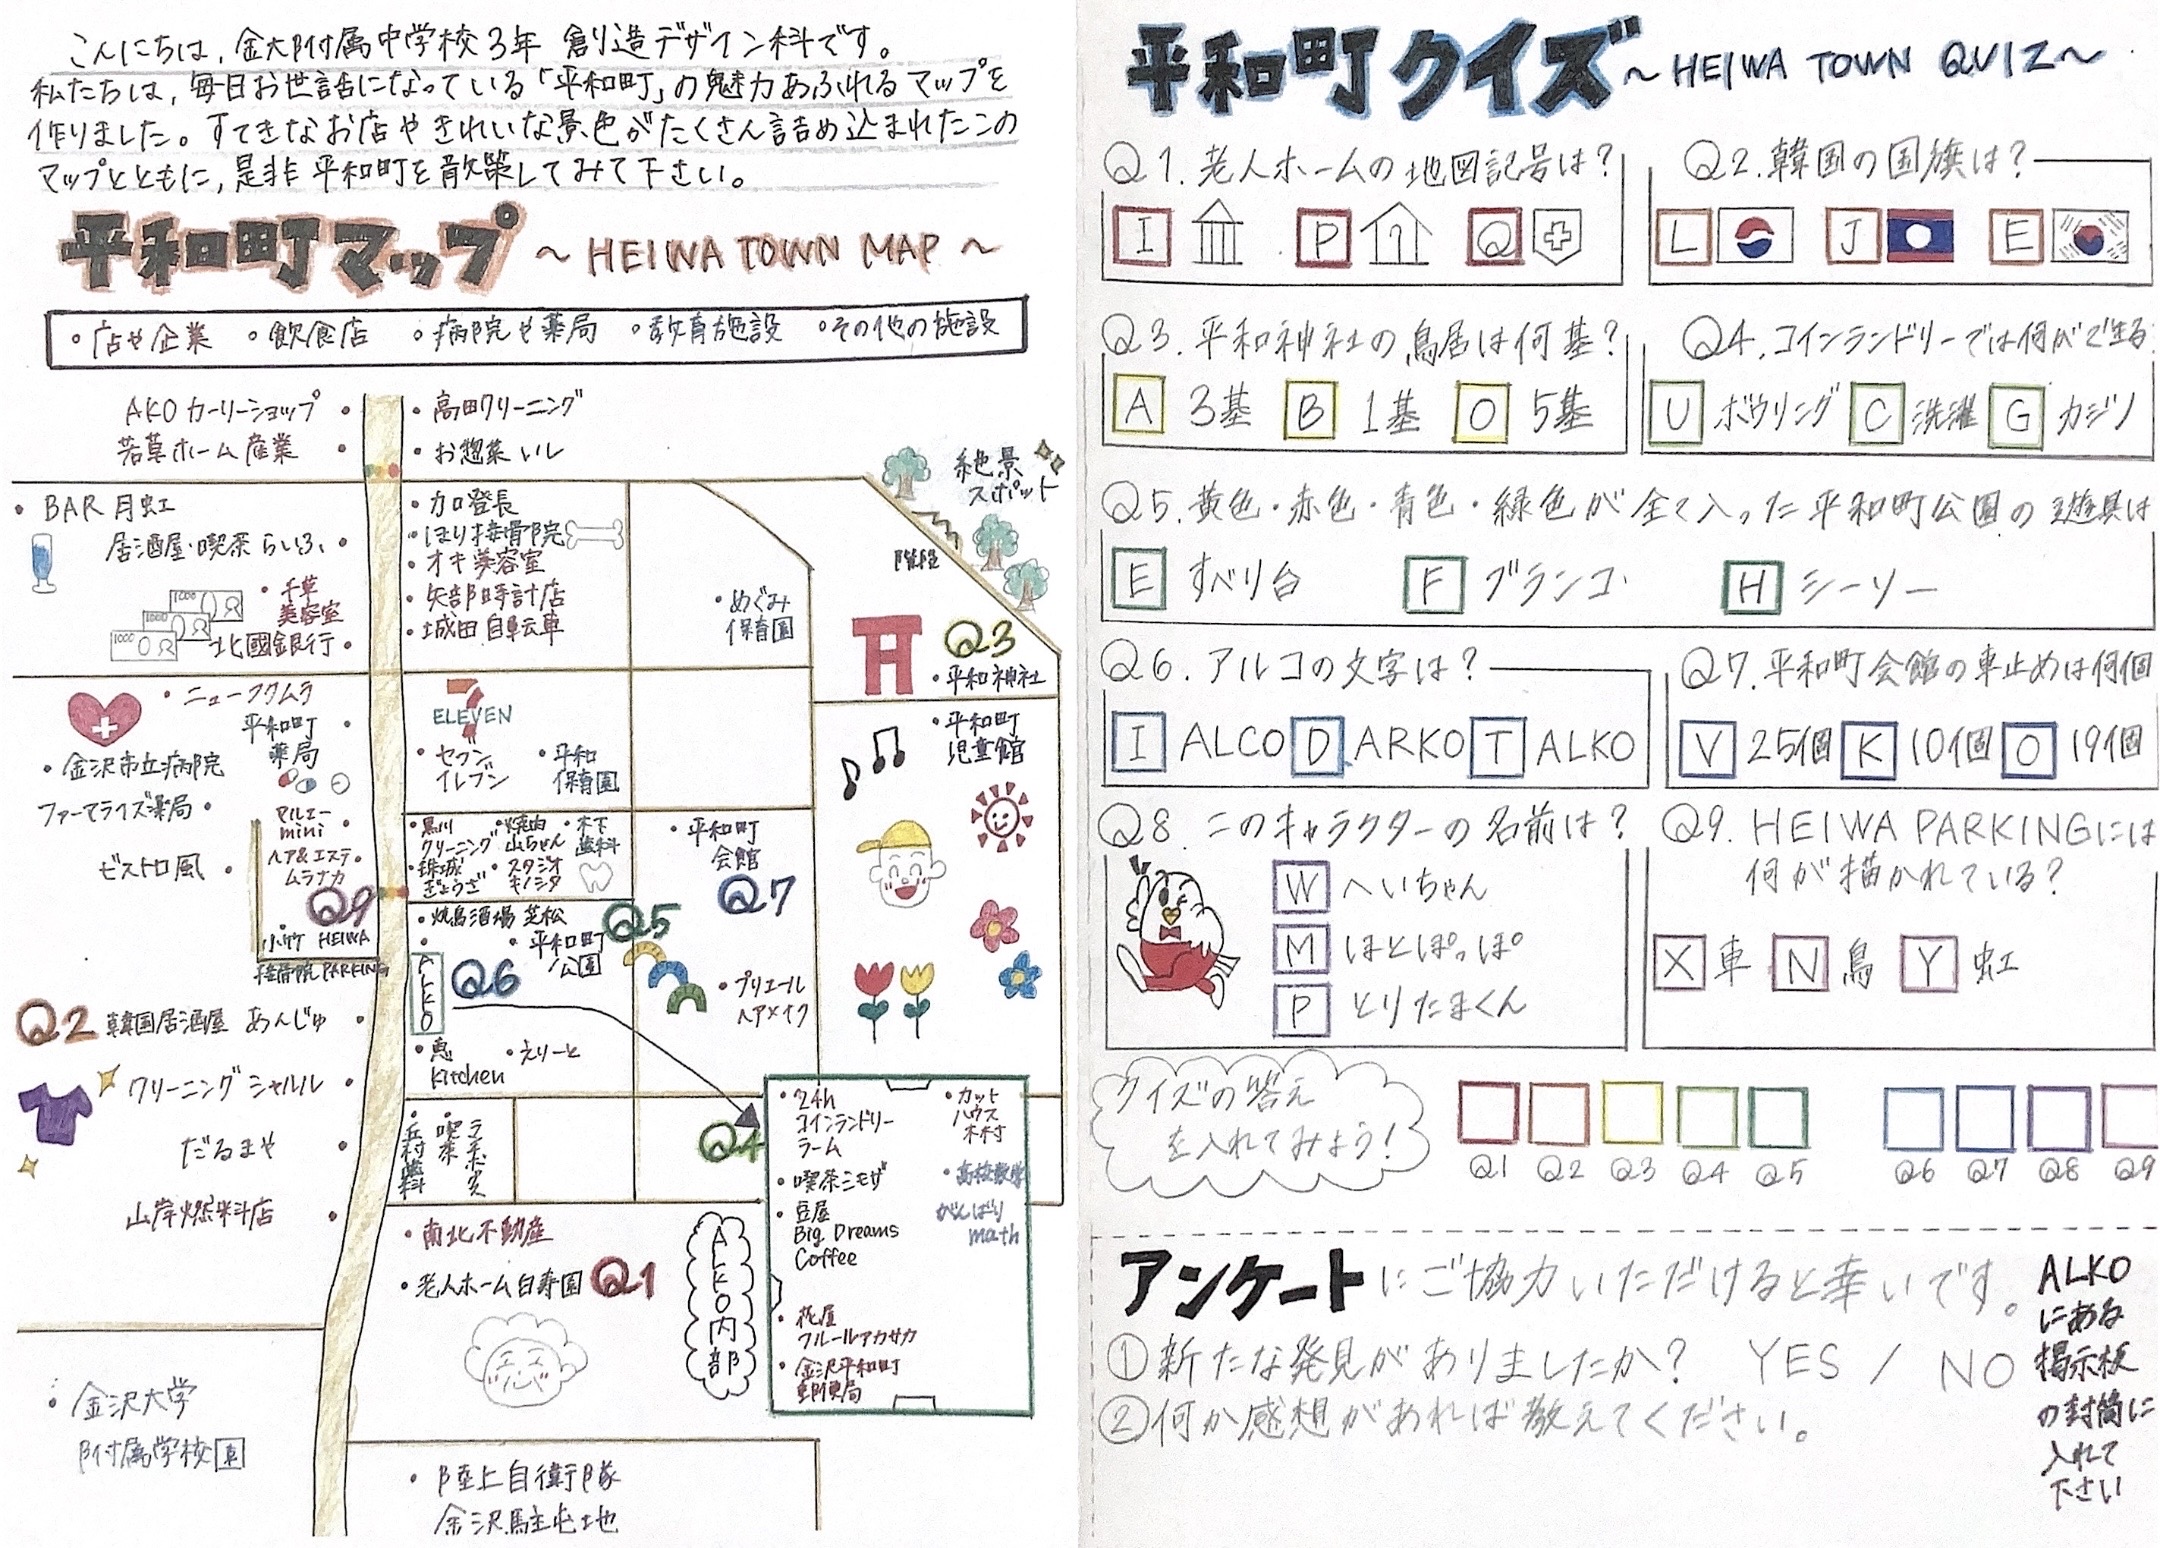 こんにちは,金大附属中学校3年 創造デザイン科です。
私たちは,毎日お世話になっている「平和町」の魅力あふれるマップを
作りました。すてきなお店やきれいな景色がたくさん詰め込まれたこの
マップとともに,是非平和町を散策してみて下さい。
平和町マップ ~ HEIWA TOWN MAP ~
・店や企業 ・飲食店 ・病院や薬局 ・教育施設 ・その他の施設
AKOカーリーショップ・
若草ホーム産業・
・高田クリーニング
・お惣菜いし
絶景
スポット
階段
・BAR月虹
居酒屋・喫茶らいふ・
・千草
美容室
1000
1000
1000
北國銀行・
・加登長
・ほり接骨院
・オキ美容室
・矢部時計店
・城田自転車
・めぐみ
保育園
Q3
・平和神社
・ニューフクムラ
平和町・
薬局
・金沢市立病院
ファーマライズ薬局・
マルエー・
mini
ヘア&エステ・
ムラナカ
ビストロ風・
Q9
・小竹
接骨院
HEIWA
PARKING
7
ELEVEN
・セブン
イレブン
・平和
保育園
・平和町
児童館
・黒川
クリーニング
・焼肉
山ちゃん
・木下
歯科
・珠城
ぎょうざ
・スタジオ
キノシタ
・平和町
会館
Q7
・焼鳥酒場 芝松
・平和町
公園
Q5
・ALKO
Q6
・プリエール
ヘアメイク
・恵
Kitchen
・えりーと
Q2 韓国居酒屋 あんじゅ・
クリーニング シャルル・
だるまや・
山岸燃料店・
Q4
・24h
コインランドリー
ラーム
・喫茶ミモザ
・豆屋
Big Dreams
Coffee
・花屋
フルールアカサカ
・金沢平和町
郵便局
・カット
ハウス
木村
・高校数学
がんばり
math
ALKO内部
・南北不動産
・老人ホーム白寿園 Q1
・金沢大学
附属学校園
・陸上自衛隊
金沢駐屯地
平和町クイズ~HEIWA TOWN QUIZ~
Q1.老人ホームの地図記号は?
I P Q
Q2.韓国の国旗は?
L J E
Q3.平和神社の鳥居は何基?
A 3基 B 1基 O 5基
Q4.コインランドリーでは何ができる
U ボウリング C 洗濯 G カジノ
Q5.黄色・赤色・青色・緑色が全て入った平和町公園の遊具は
E すべり台 F ブランコ H シーソー
Q6.アルコの文字は?
I ALCO D ARKO T ALKO
Q7.平和町会館の車止めは何個
V 25個 K 10個 O 19個
Q8 このキャラクターの名前は?
W へいちゃん
M はとぽっぽ
P とりたまくん
Q9.HEIWA PARKINGには
何が描かれている?
X 車 N 鳥 Y 虹
クイズの答え
を入れてみよう!
Q1 Q2 Q3 Q4 Q5 Q6 Q7 Q8 Q9
アンケートにご協力いただけると幸いです。
①新たな発見がありましたか? YES / NO
②何か感想があれば教えてください。
ALKO
にある
掲示板
の封筒に
入れて
下さい